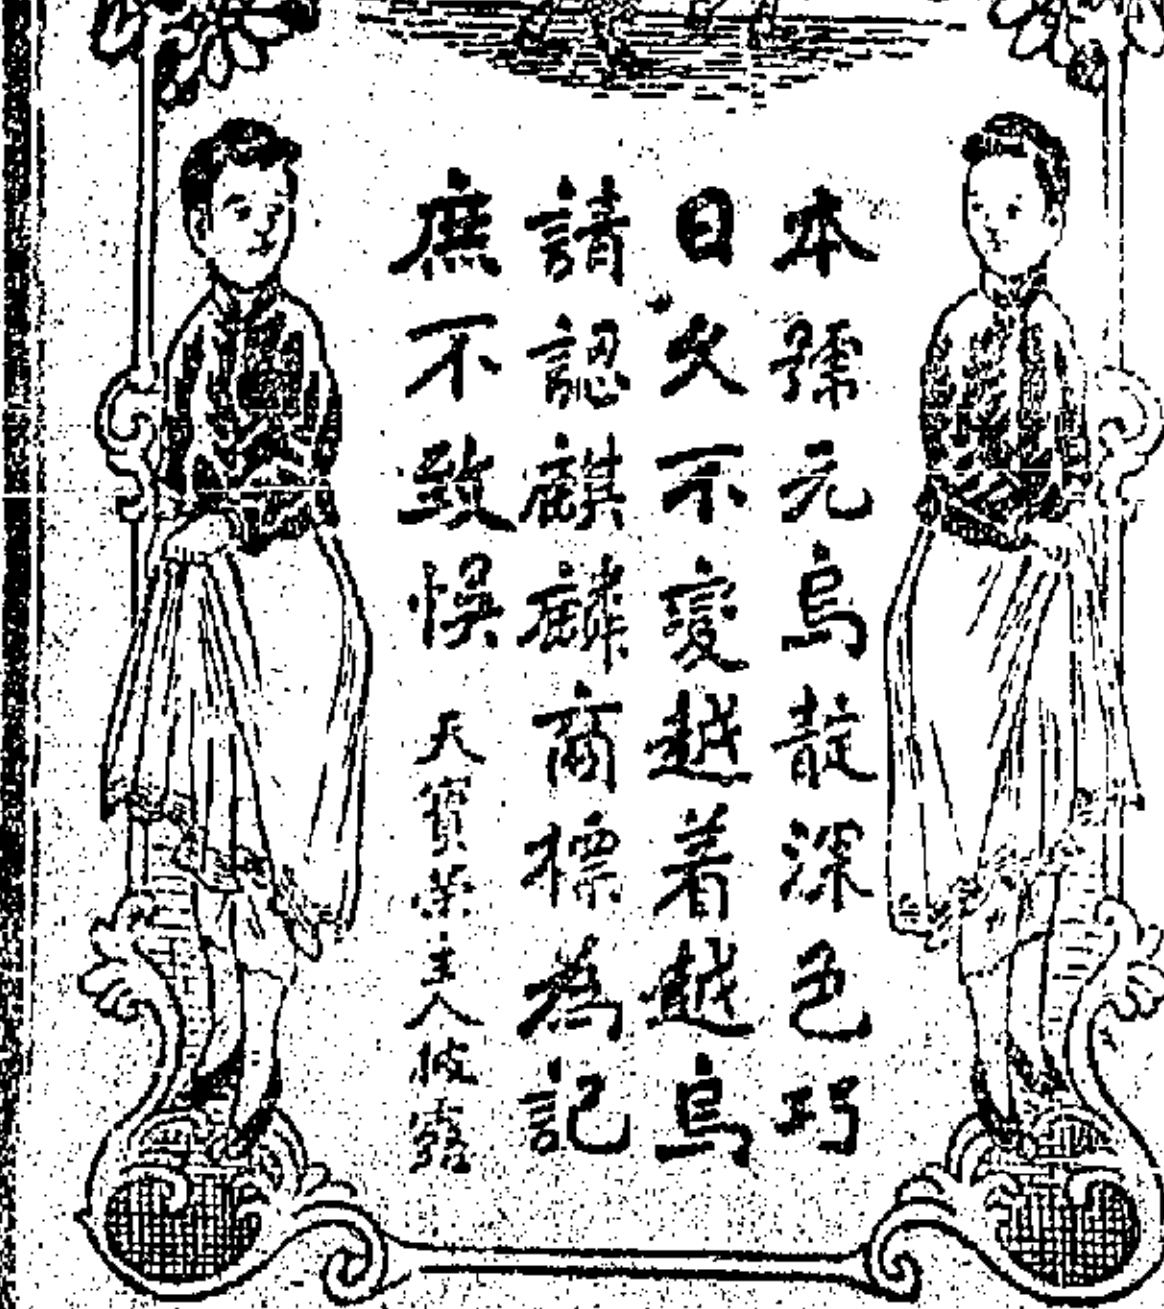 本號元烏靛深色巧
日久不變越着越烏
請認麒麟商標為記
庶不致悞
天寶榮主人披露